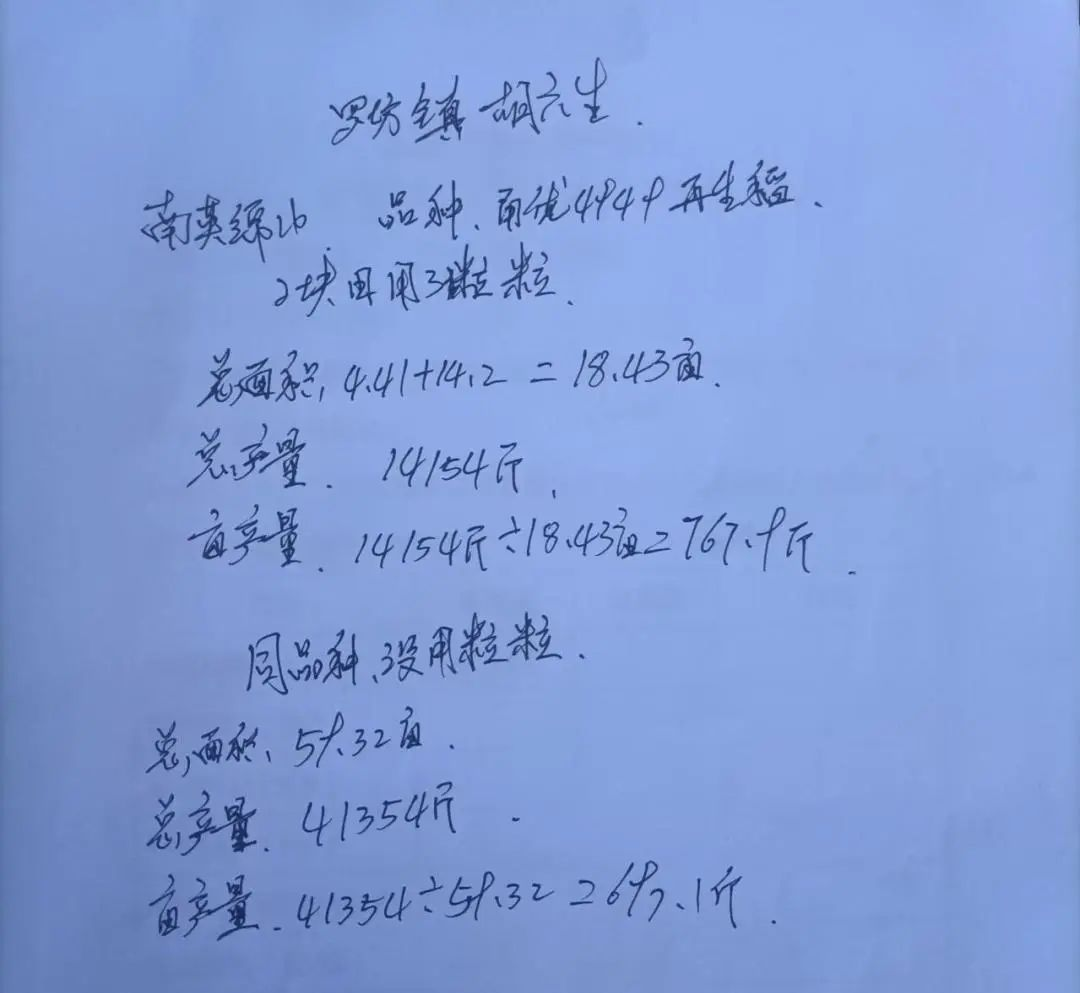 罗坊镇 胡六生.
南英 品种、甬优4949再生稻.
2块田用了粒粒.
总面积, 4.41+14.2=18.43亩.
总产量. 14154斤.
亩产量. 14154斤÷18.43亩=767.9斤.
同品种、没用粒粒.
总面积, 59.32亩.
总产量. 41354斤.
亩产量. 41354÷59.32=697.1斤.